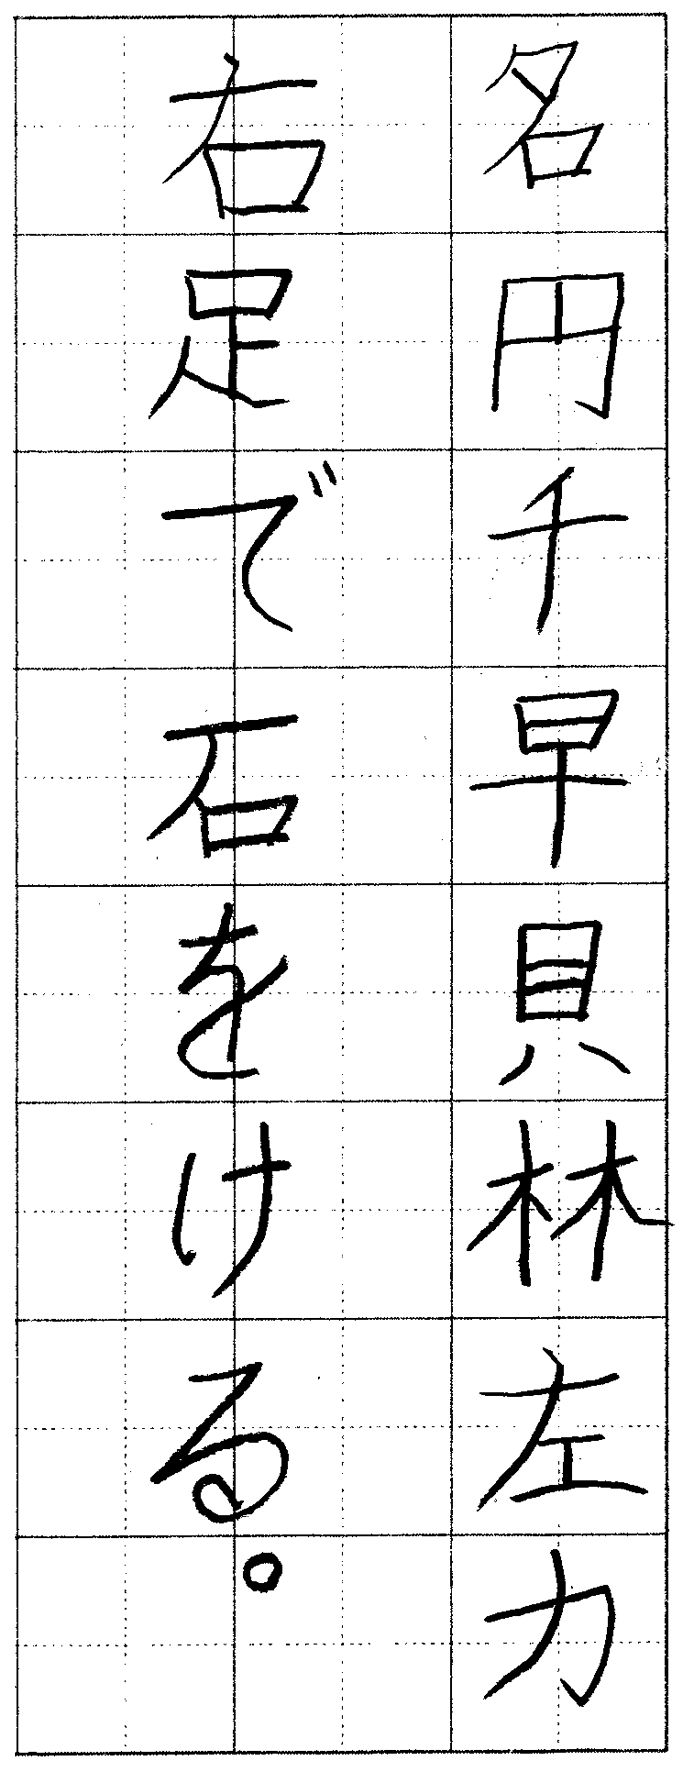 名円千早貝林左力
右足で石をける。